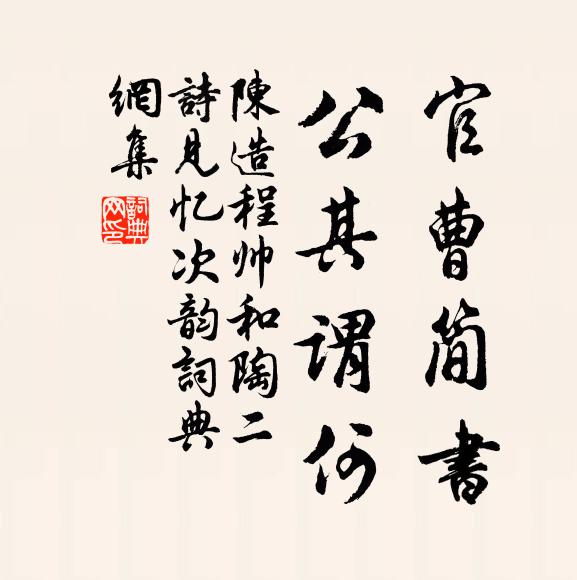 官曹简書
公其謂何
陳造程帅和陶二
詩見忆次韵詞典
網集
詞典網印